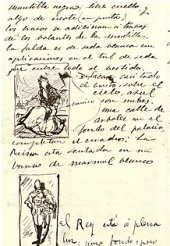 mantilla negra, lleva cuello
algo de escote (en punta) y
los brazos se adivinan a través
de los volantes de la mantilla.
La falda es de seda blanca con
aplicaciones en el tul de seda
que cubre todo el vestido.
casi todo
sobre el
cielo, azul
con nubes.
una calle de
árboles en el
fondo del palacio,
completan el cuadro. La
Reina está sentada en un
banco de mármol blanco
El Rey está a plena
luz, pero fondo, pero